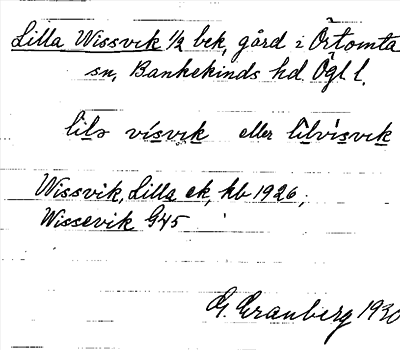 Lilla Wissvik 1/2 bek, gård i Örtomta
sn, Bankekinds hd Ögl l.
lilə vísvik eller lilvìsvik
Wissvik, Lilla ek, kb 1926;
Wissevik G45
G. Granberg 1930